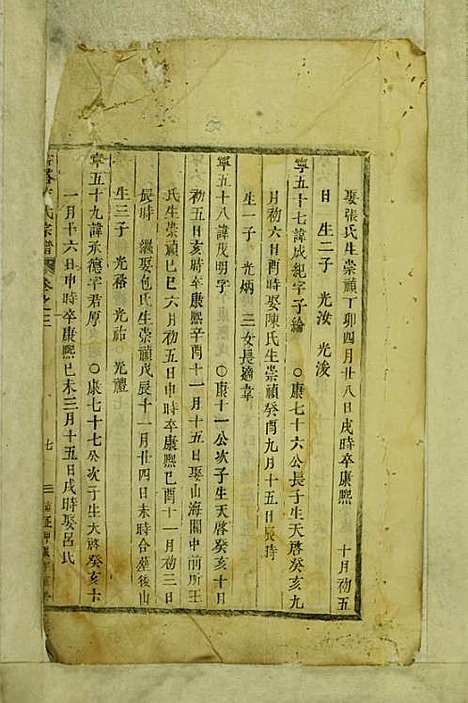 娶張氏生崇禎丁卯四月廿八日戌時卒康熙 十月初五
日 生二子 光汝 光浚
寧五十七諱成紀字子綸 ○康七十六公長子生天啓癸亥九
月初六日酉時娶陳氏生崇禎癸酉九月十五日辰時
生一子 光炳 三女長適韋
寧五十八諱茂明字 ○康十一公次子生天啓癸亥十月
初五日亥時卒康熙辛酉十一月十五日娶山海關中前所王
氏生崇禎己巳六月初五日申時卒康熙己酉十一月初三日
辰時 繼娶包氏生崇禎戊辰十一月廿四日未時合塟後山
生三子 光裕 光祐 光禮
寧五十九諱承德字君厚 ○康七十七公次子生天啓癸亥十
一月十六日申時卒康熙己未三月十五日戌時娶呂氏
氏宗譜 卷之三 七